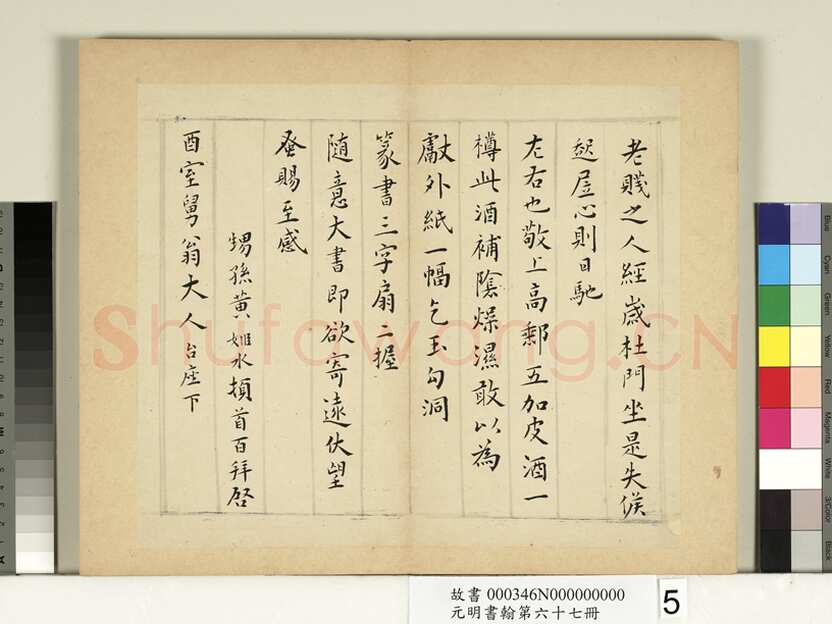 老賤之人經歲杜門坐是失候
起居心則日馳
左右也敬上高郵五加皮酒一
樽此酒補陰燥濕敢以為
獻外紙一幅乞玉勾洞
篆書三字扇二握
隨意大書即欲寄遠伏望
蚤賜至感
甥孫黃姬水頓首百拜啓
酉室舅翁大人台座下
Shufawang.CN
故書 000346N000000000
元明書翰第六十七冊
5
Blue
Cyan
Green
Yellow
Red
Magenta
White
3/Color
Black